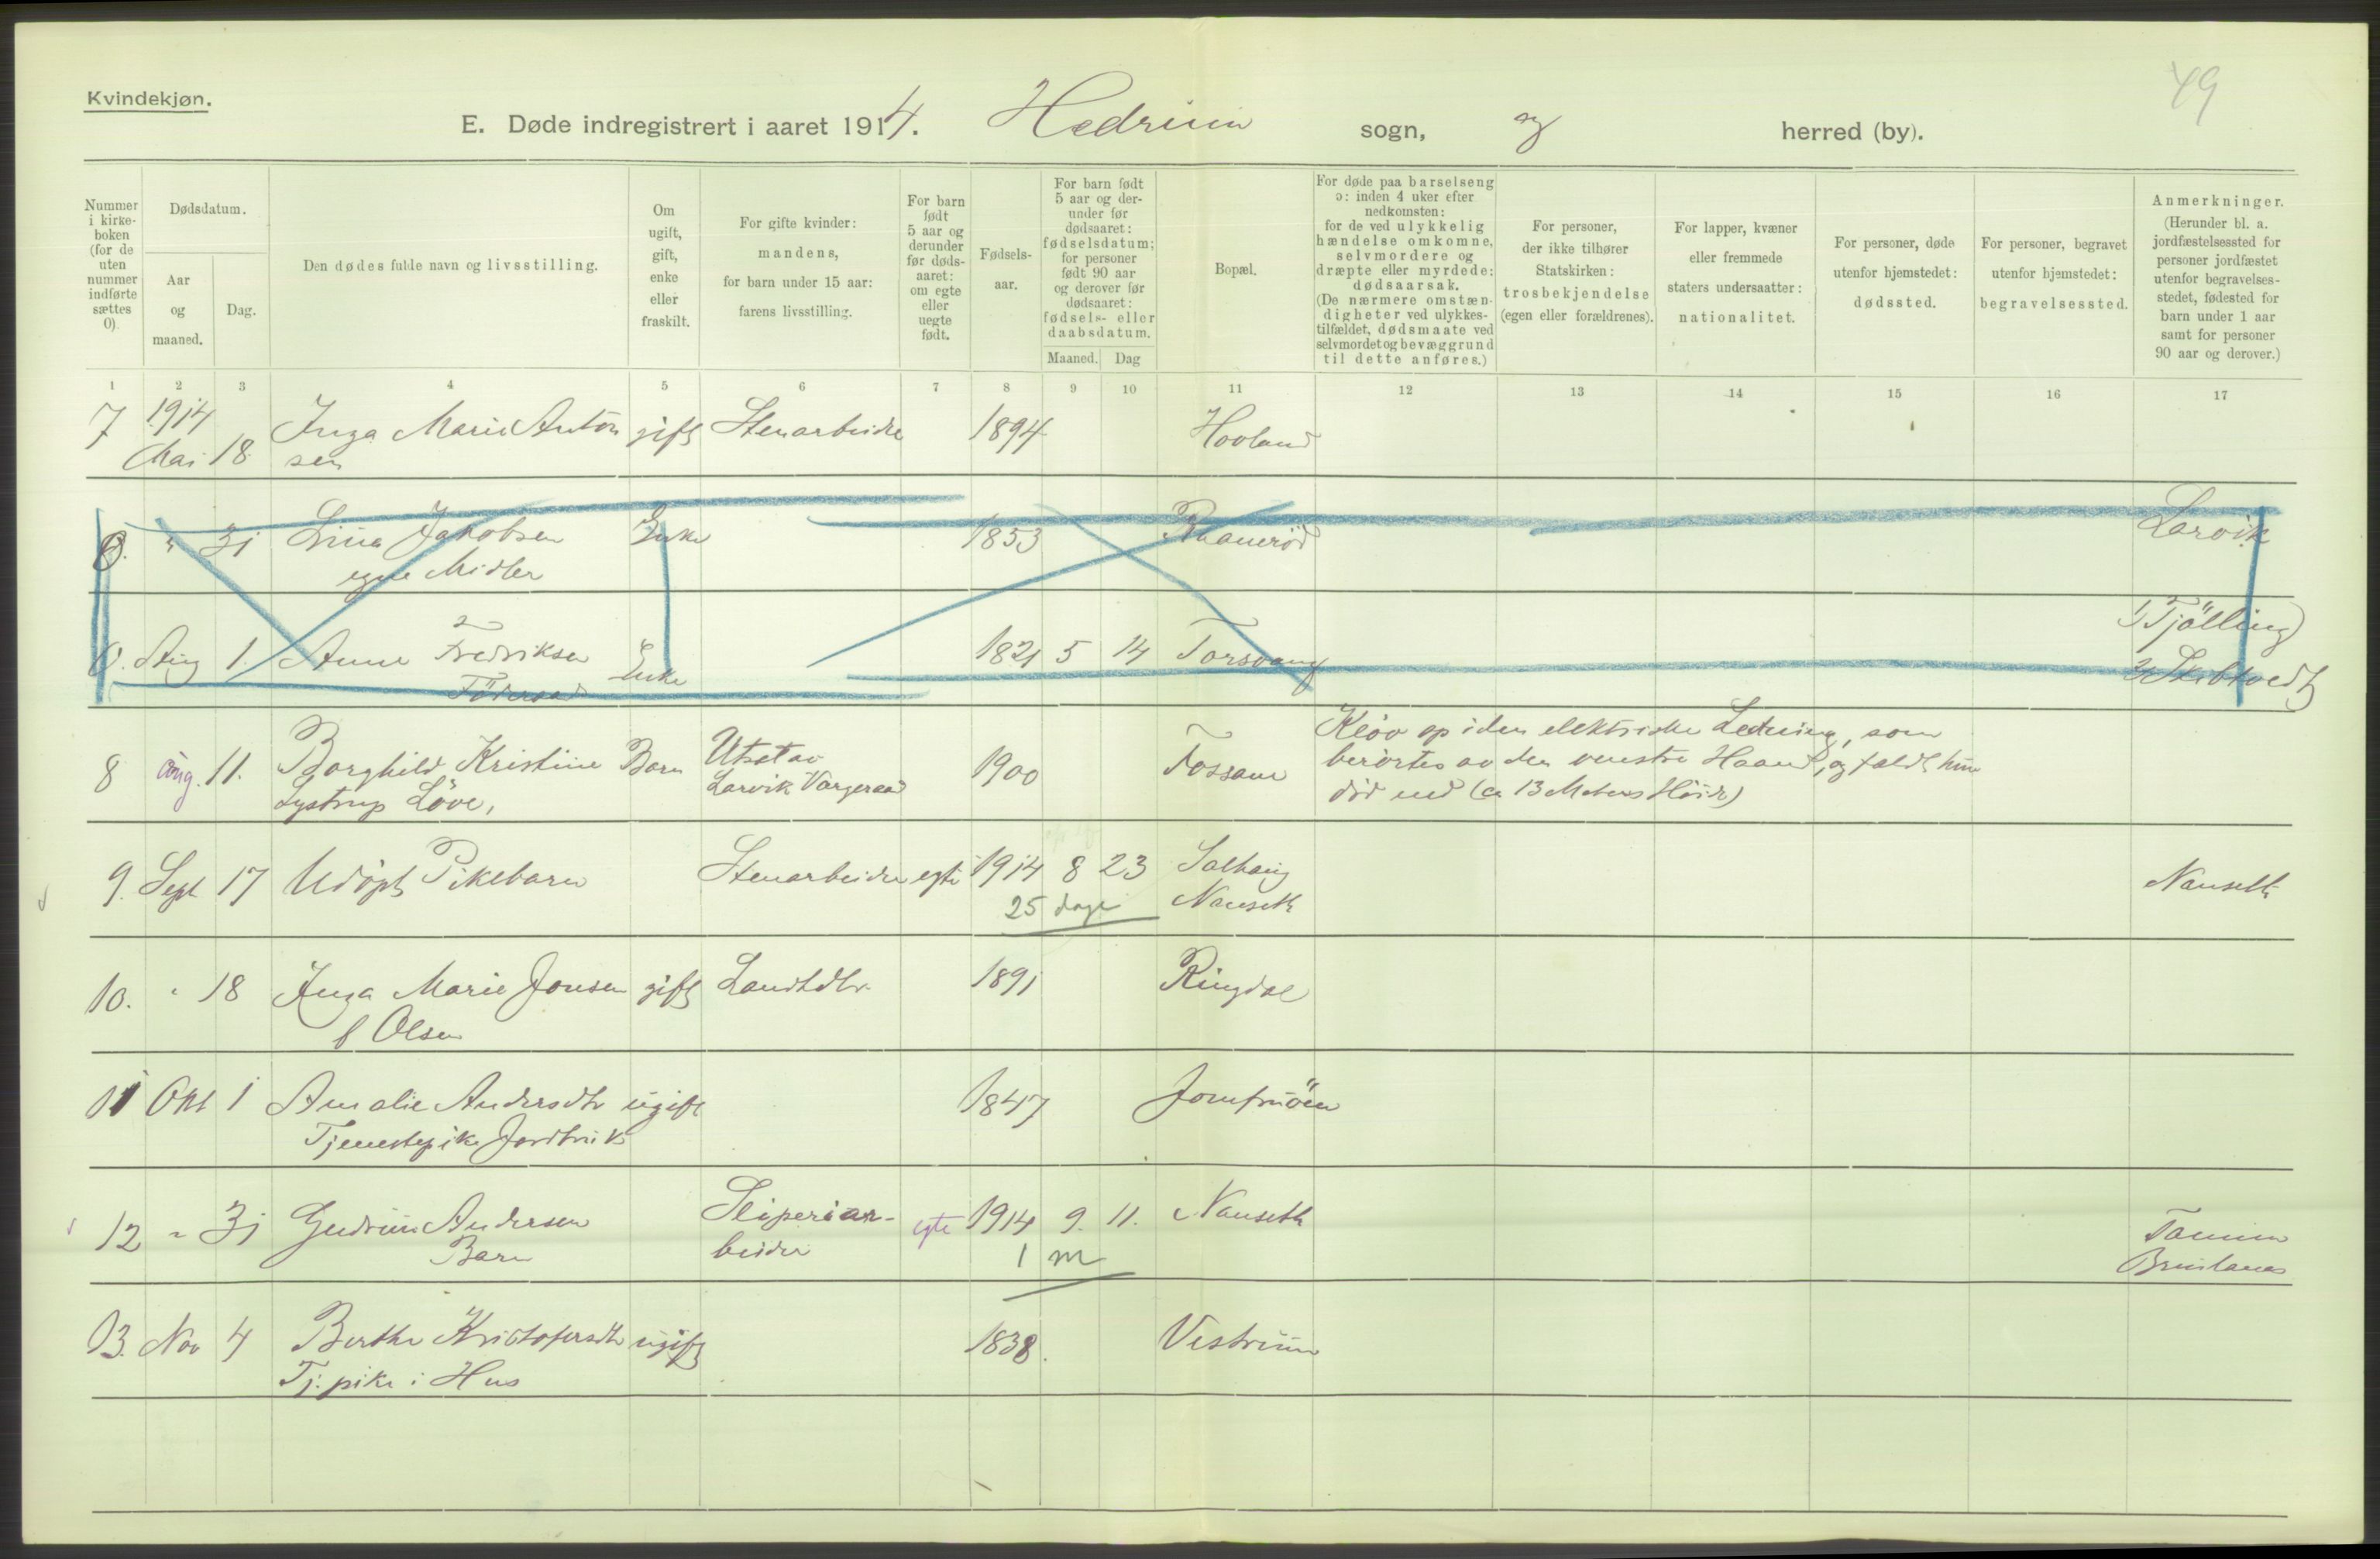 49
Kvindekjøn.
E. Døde indregistrert i aaret 1914. Hedrum sogn, og herred (by).
Nummer i kirke-boken (for de uten nummer indførte sættes 0).
Dødsdatum.
Aar og maaned.
Dag.
Den dødes fulde navn og livsstilling.
Om ugift, gift, enke eller fraskilt.
For gifte kvinder: mandens, for barn under 15 aar: farens livsstilling.
For barn født 5 aar og derunder før døds-aaret: om egte eller uegte født.
Fødsels-aar.
For barn født 5 aar og der-under før dødsaaret: fødselsdatum; for personer født 90 aar og derover før dødsaaret: fødsels- eller daabsdatum.
Maaned. Dag
Bopæl.
For døde paa barselseng ɔ: inden 4 uker efter nedkomsten: for de ved ulykkelig hændelse omkomne, selvmordere og dræpte eller myrdede: dødsaarsak. (De nærmere omstæn-digheter ved ulykkes-tilfældet, dødsmaate ved selvmordet og bevæggrund til dette anføres.)
For personer, der ikke tilhører Statskirken: trosbekjendelse (egen eller forældrenes).
For lapper, kvæner eller fremmede staters undersaatter: nationalitet.
For personer, døde utenfor hjemstedet: dødssted.
For personer, begravet utenfor hjemstedet: begravelsessted.
Anmerkninger. (Herunder bl. a. jordfæstelsessted for personer jordfæstet utenfor begravelses-stedet, fødested for barn under 1 aar samt for personer 90 aar og derover.)
1 2 3 4 5 6 7 8 9 10 11 12 13 14 15 16 17
7 1914 Mai 18 Inga Marie Anton gift Stenarbeider 1894 Hovland
sen
0. " 31 Lina Jakobsen Enke 1853 Larvik
egne Midler
0. Aug 1. Anne Fredriksen Enke 1821 5 14 Torsvang 1) Tjölling
2
8 aug. 11. Borghild Kristine Barn Utsat av 1900 Fossane Kløv op i den elektriske Ledning, som
Lystrup Löve, Larvik Værgeraad berørtes av den venstre Haand, og faldt hun
død ned (ca 13 Meters Höide)
9. Sept 17 Udöpt Pikebarn Stenarbeider egte 1914 8 23 Solhaug Nanseth
25 dage Nanseth
10. " 18 Inga Marie Jonsen gift 1891 Ringdal
f Olsen
11 Okt 1 Amalie Andersdtr ugift 1847 Jomfruöen
Tjenestepike Jordbruk
12 " 31 Gudrun Andersen Sliperiar- egte 1914 9. 11. Nanseth Tanum
Barn beider 1 m Brunlanes
13. Nov 4 Berthe Kristofersdtr ugift 1838. Vestrum
Tj. pike i Hus